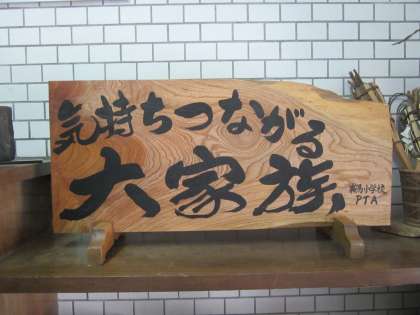 気持ちつながる
大家族
小学校
PTA